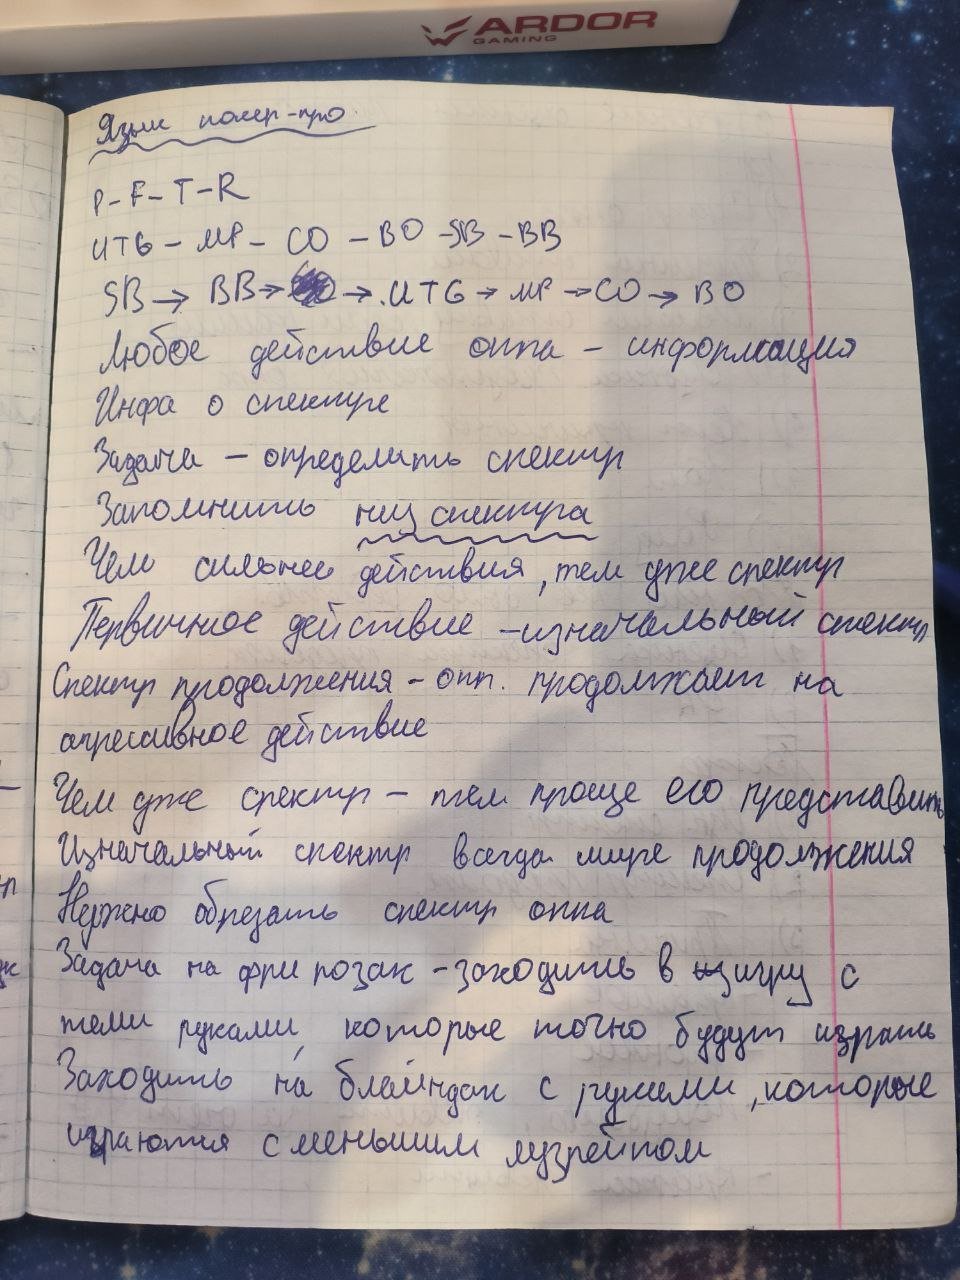 ARDOR
GAMING
Язык покер-про
P-F-T-R
UTG - MP - CO - BO - SB - BB
SB → BB → → UTG → MP → CO → BO
Любое действие оппа - информация
Инфа о спектре
Задача - определить спектр
Запомнить низ спектра
Чем сильнее действия, тем уже спектр
Первичное действие - изначальный спектр
Спектр продолжения - опп. продолжает на
агрессивное действие
Чем уже спектр - тем проще его представить
Изначальный спектр всегда шире продолжения
Нужно обрезать спектр оппа
Задача на фри позах - заходить в игру с
теми руками, которые точно будут играть
Заходить на блайндах с руками, которые
играются с меньшим лузрейтом